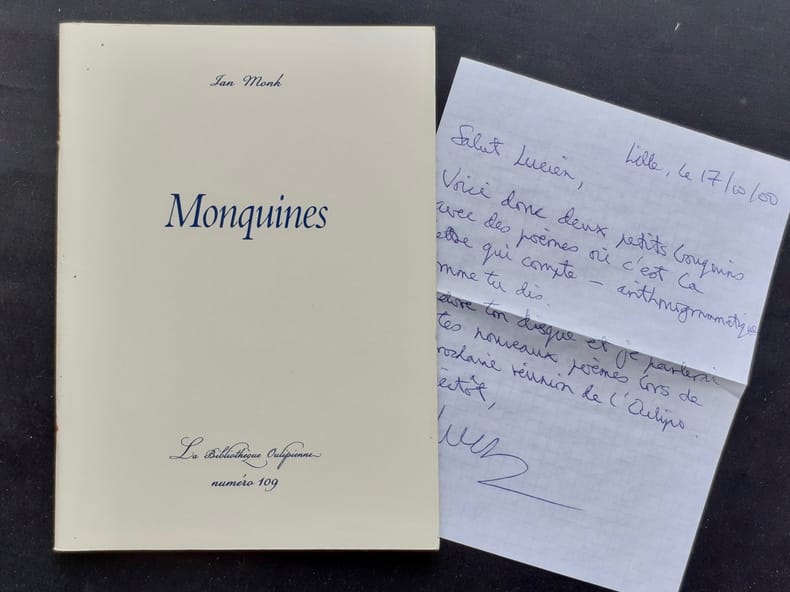 Ian Monk
Monquines
La Bibliothèque Oulipienne
numéro 109
Lille, le 17/10/00
Salut Lucien,
Voici donc deux petits bouquins
avec des poèmes où c'est la
ettre qui compte – arithmogrammatique
mme tu dis.
ton disque et je parlerai
tes nouveaux poèmes lors de
rochaine réunion de l'Oulipo.
ientôt,